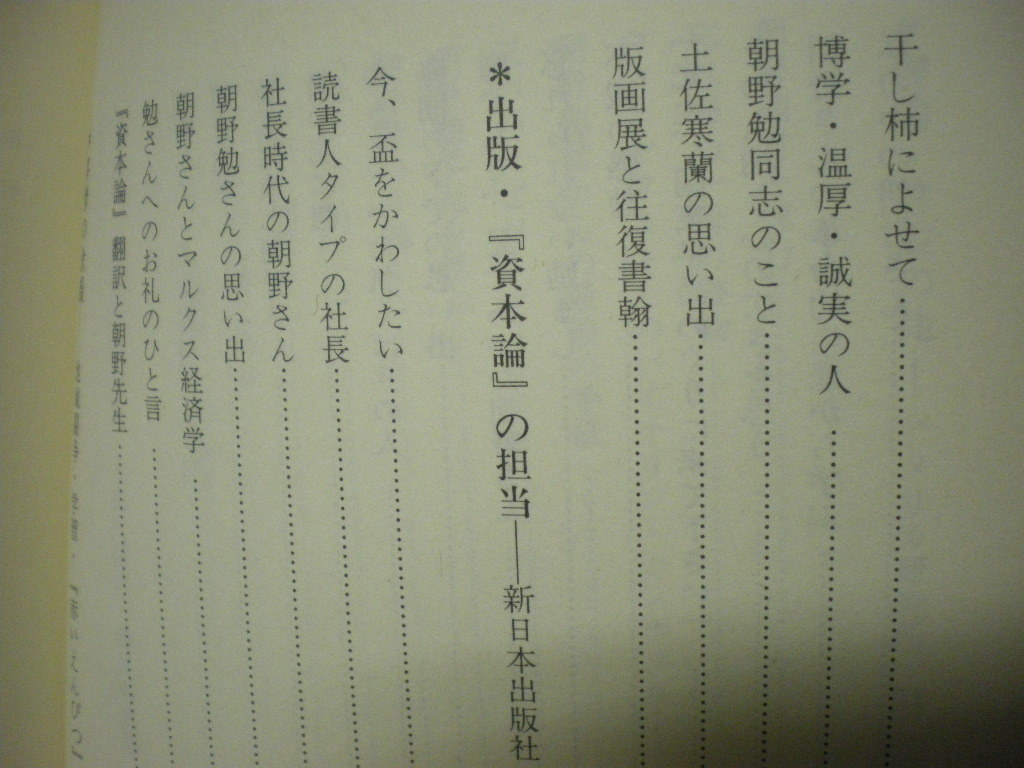 干し柿によせて……………………
博学・温厚・誠実の人……………………
朝野勉同志のこと……………………
土佐寒蘭の思い出……………………
版画展と往復書翰……………………
＊出版・『資本論』の担当――新日本出版社
今、盃をかわしたい……………………
読書人タイプの社長……………………
社長時代の朝野さん……………………
朝野勉さんの思い出……………………
朝野さんとマルクス経済学……………………
勉さんへのお礼のひと言……………………
『資本論』翻訳と朝野先生……………………